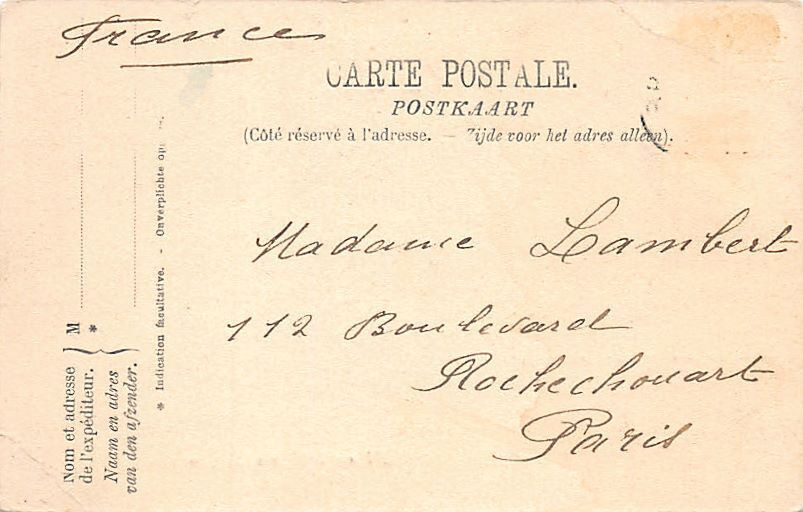 France
CARTE POSTALE.
POSTKAART
(Côté réservé à l'adresse. — Zijde voor het adres alleen).
Madame Lambert
112 Boulevard
Rochechouart
Paris
Nom et adresse
de l'expéditeur.
Naam en adres
van den afzender.
M
*
* Indication facultative. - Onverplichte